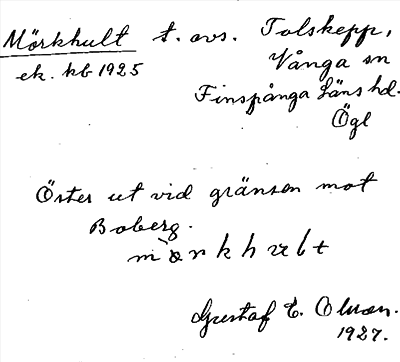 Mörkhult t. avs. Tolskepp,
ek. kb 1925 Vånga sn
Finspånga läns hd.
Ögl
Öster ut vid gränsen mot
Boberg.
Gustaf E. Olsson.
1927.